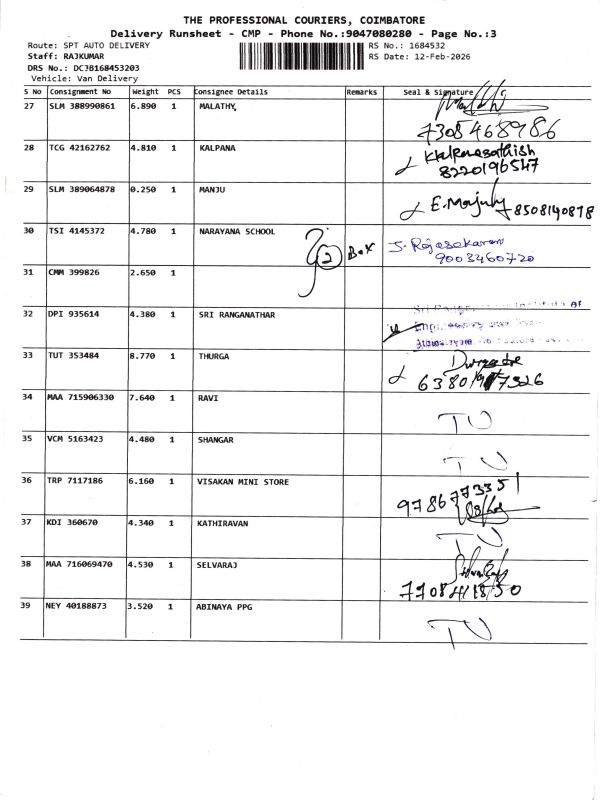 THE PROFESSIONAL COURIERS, COIMBATORE
Delivery Runsheet - CMP - Phone No.:9047080280 - Page No.:3
Route: SPT AUTO DELIVERY RS No.: 1684532
Staff: RAJKUMAR RS Date: 12-Feb-2026
DRS No.: DC3B168453203
Vehicle: Van Delivery
S No Consignment No Weight PCS Consignee Details Remarks Seal & Signature
27 SLM 388990861 6.890 1 MALATHY,
7305468986
28 TCG 42162762 4.810 1 KALPANA Kalpanasathish
8220196547
29 SLM 389064878 0.250 1 MANJU E. Manjula 8508140878
30 TSI 4145372 4.780 1 NARAYANA SCHOOL 2 Box S. Rajasekaran
9003460720
31 CMM 399826 2.650 1
32 DPI 935614 4.380 1 SRI RANGANATHAR
33 TUT 353484 8.770 1 THURGA
34 MAA 715906330 7.640 1 RAVI TU
35 VCM 5163423 4.480 1 SHANGAR TU
36 TRP 7117186 6.160 1 VISAKAN MINI STORE 9786773351
37 KDI 360670 4.340 1 KATHIRAVAN TU
38 MAA 716069470 4.530 1 SELVARAJ
39 NEY 40188873 3.520 1 ABINAYA PPG TU